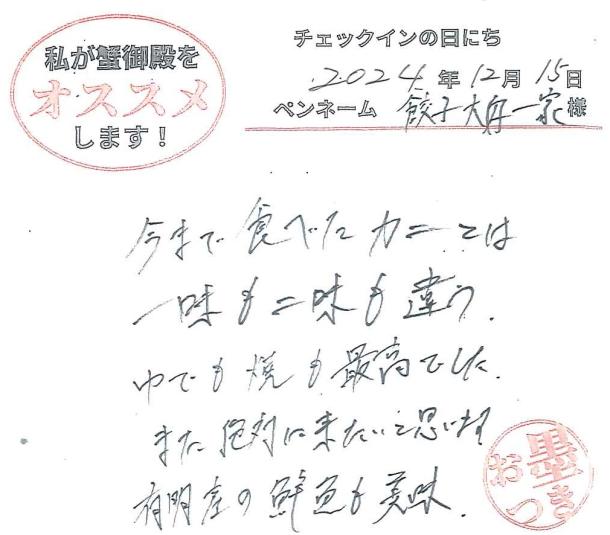 私が蟹御殿を
オススメ
します！
チェックインの日にち
2024年12月15日
ペンネーム 餃子大舟一家様
今まで食べたカニとは
一味も二味も違う.
ゆでも焼も最高でした.
また絶対に来たいと思います
有明産の鮮魚も美味.
お墨つき